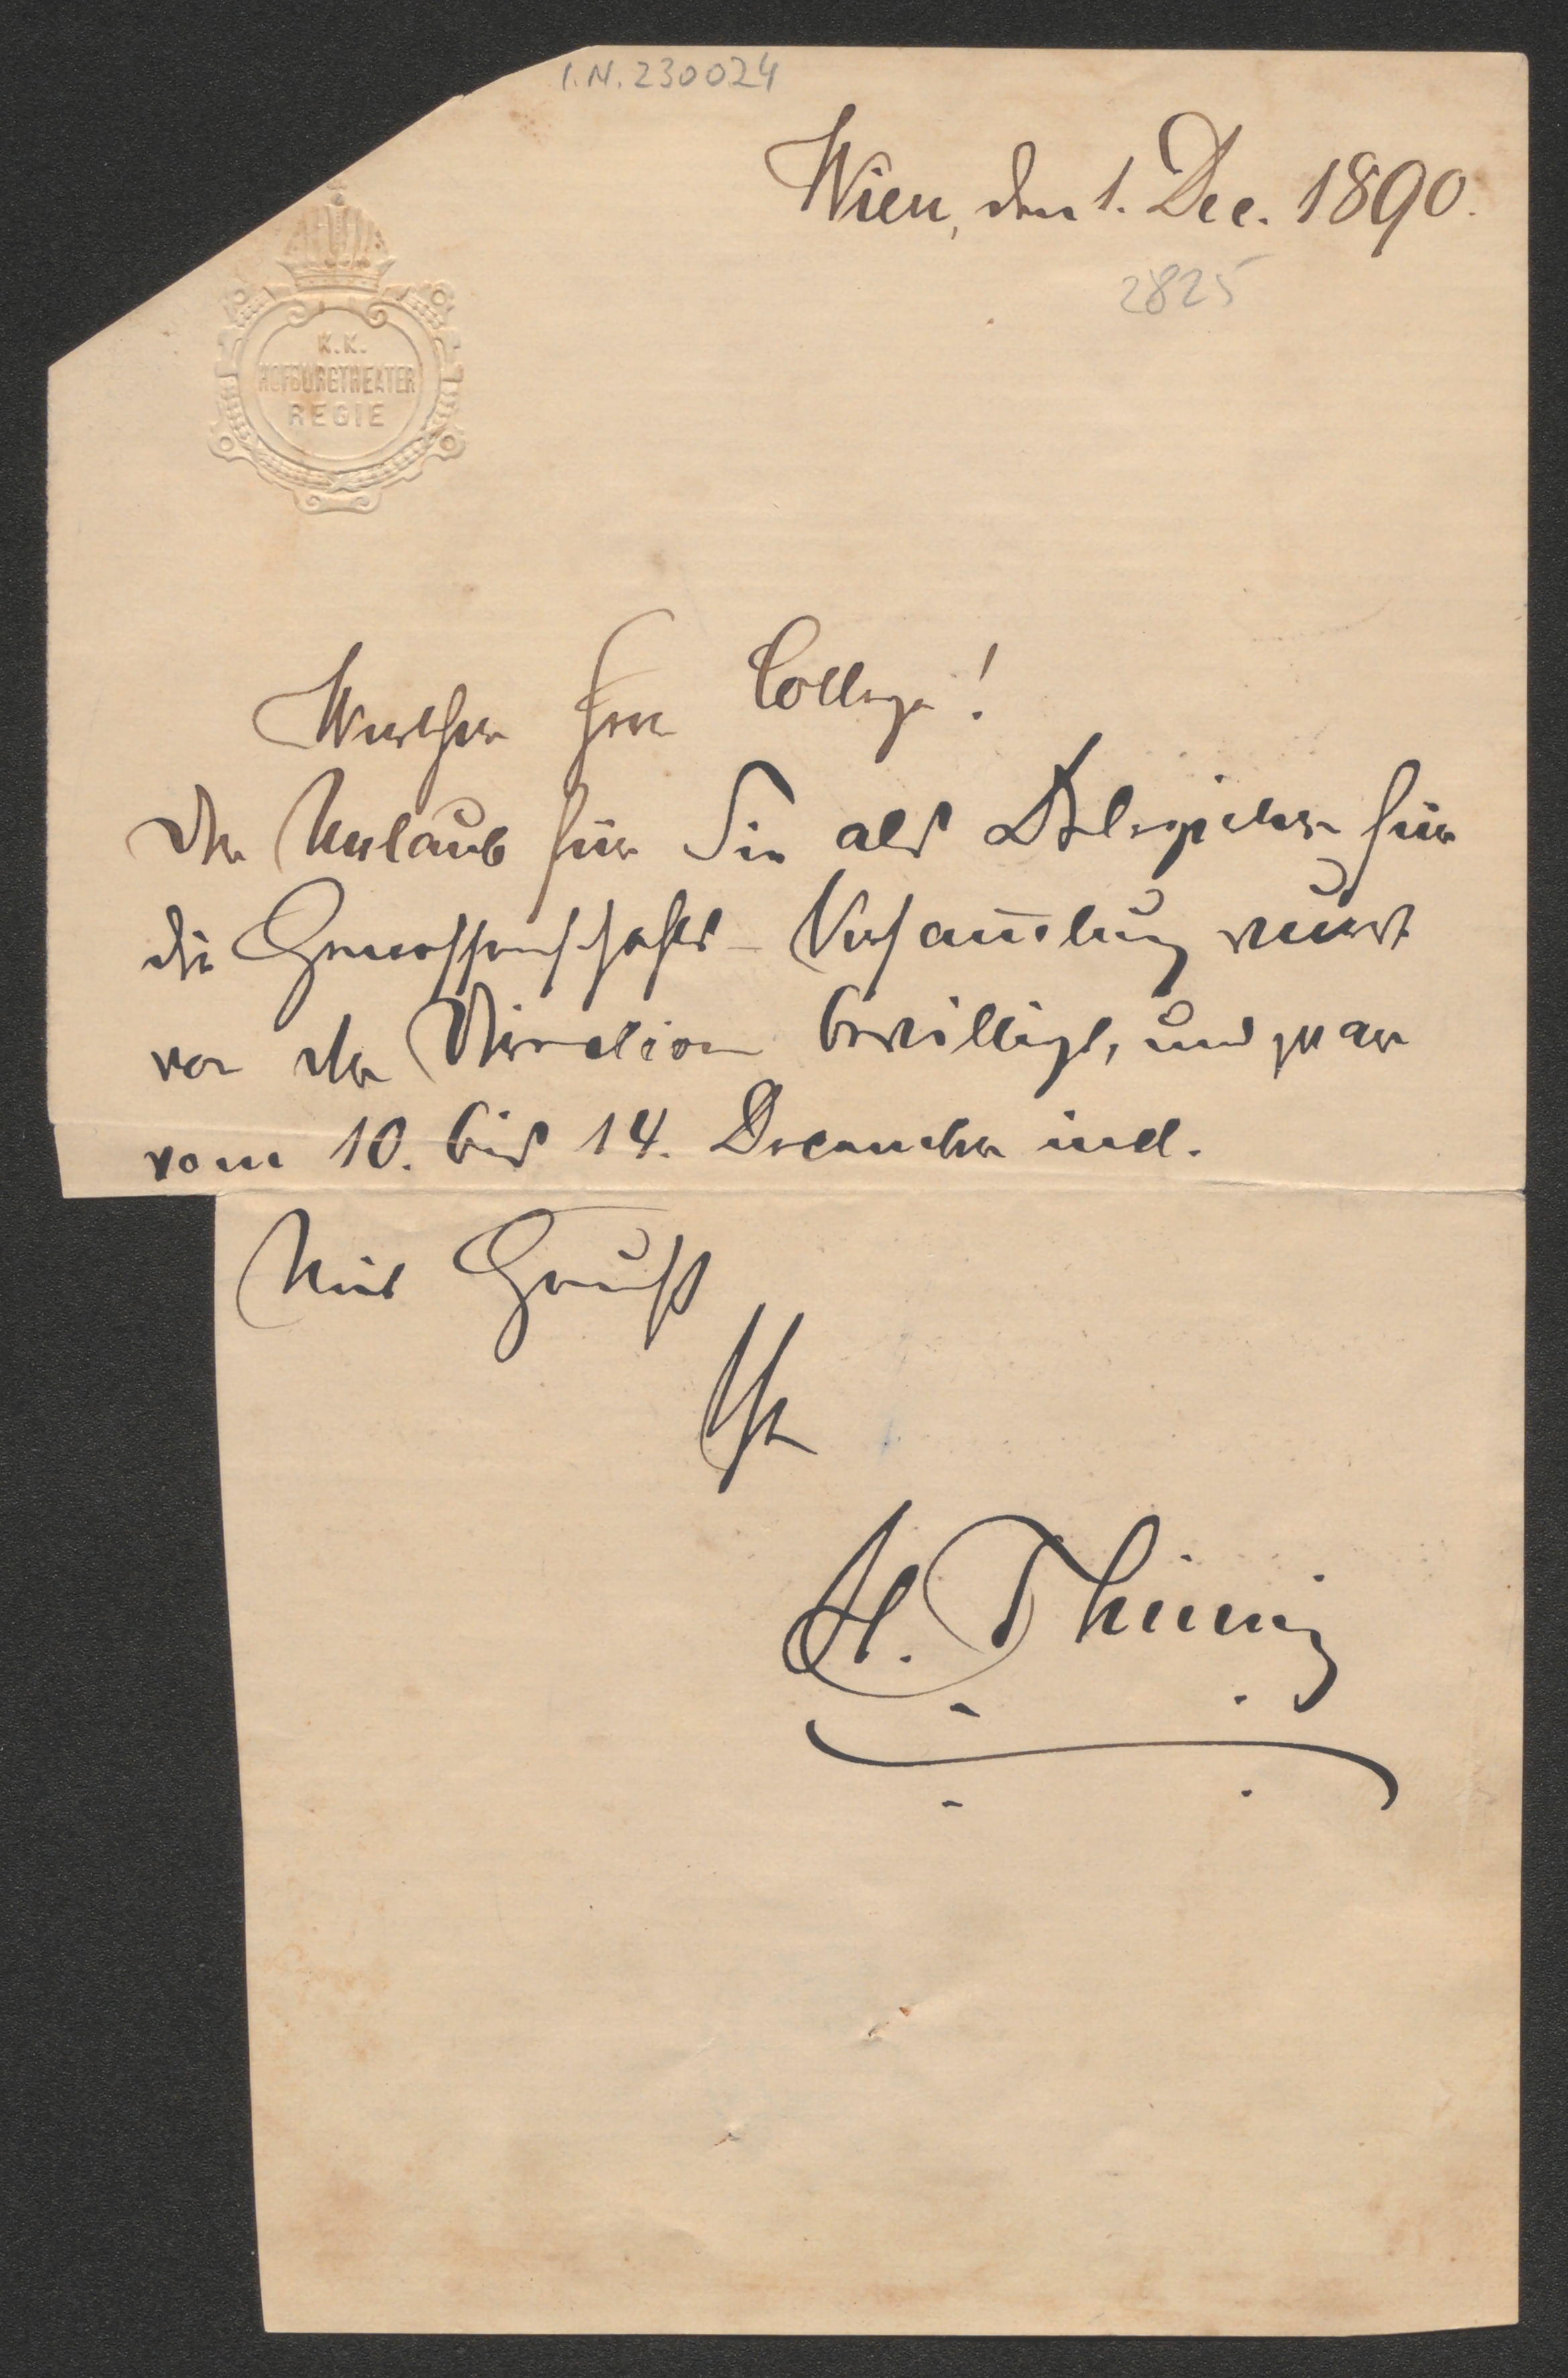 I.N. 230024
Wien, den 1. Dec. 1890.
2825
K.K.
HOFBURGTHEATER
REGIE
Werther Herr College!
Der Urlaub für Sie als Delegirter für
die Genossenschafts-Versam̅lung wurde
von der Direction bewilligt, und zwar
vom 10. bis 14. December incl.
Mit Gruß
Ihr
H. Thimig